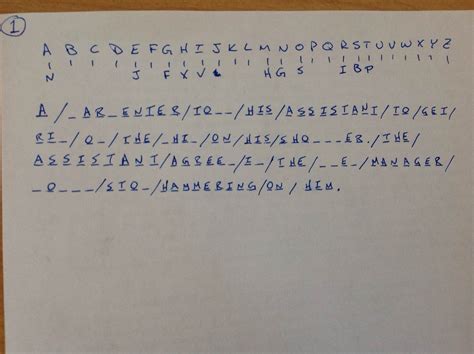 1
A B C D E F G H I J K L M N O P Q R S T U V W X Y Z
N J F X V L H G S I B P
A/_AR_ENTER/TO__/HIS/ASSISTANT/TO/GET/
RI_/O_/THE/_HI_/ON/HIS/SHO___ER./THE/
ASSISTANT/AGREE_/I_/THE/__E_/MANAGER/
_O___/STO_/HAMMERING/ON/HIM.